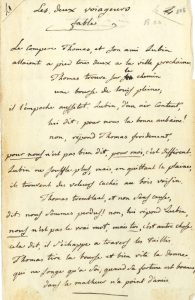 Les deux voyageurs
fable
Le compere Thomas, et son ami Lubin
alloient a pied tous deux a la ville prochaine
Thomas trouve sur le chemin
une bourse de louis pleine,
il l'empoche aussitot. Lubin, d'un air content,
lui dit: pour nous la bonne aubaine!
non, répond Thomas froidement,
pour nous n'est pas bien dit, pour moi, c'est different.
Lubin ne souffle plus, mais en quittant la plaine,
ils trouvent des voleurs cachés au bois voisin.
Thomas tremblant, et non sans cause,
dit: nous sommes perdus! non, lui répond Lubin,
nous n'est pas le vrai mot, mais toi, c'est autre chose.
cela dit, il s'échappe a travers les taillis
Thomas tire la bourse et bien vite la donne.
qui ne songe qu'a soi, quand sa fortune est bonne
dans le malheur n'a point d'amis